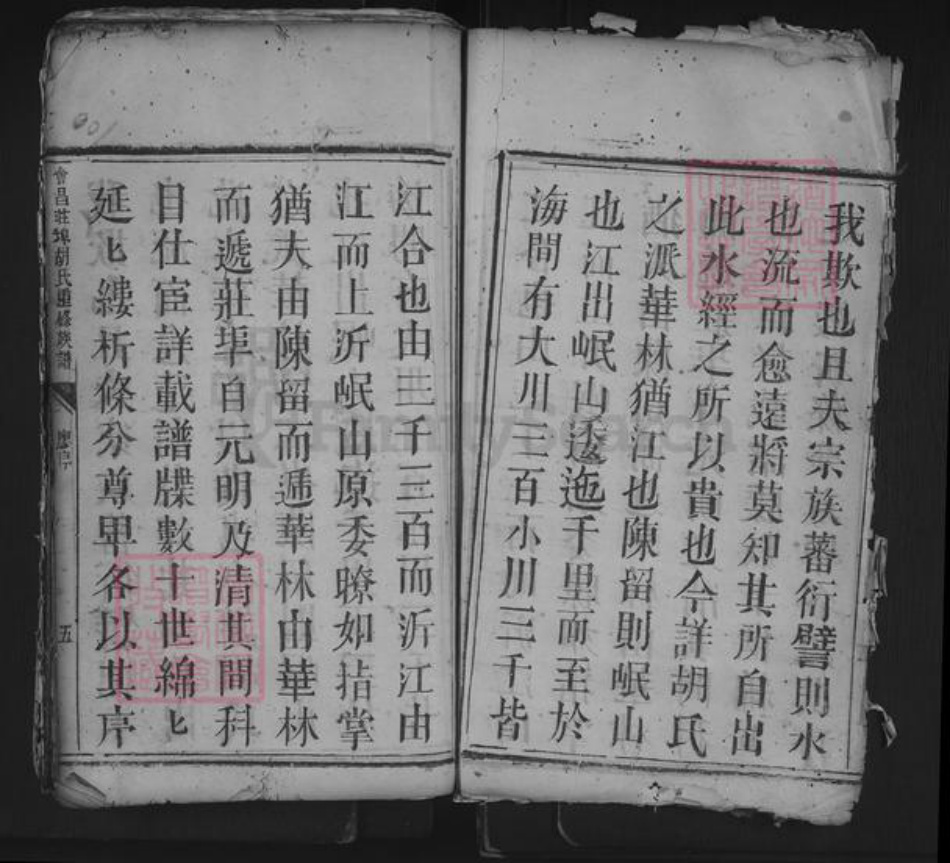 我欺也且夫宗族蕃衍譬則水
也流而愈遠將莫知其所自出
此水經之所以貴也今詳胡氏
之派華林猶江也陳留則岷山
也江出岷山逶迤千里而至於
海間有大川三百小川三千皆
江合也由三千三百而泝江由
江而上泝岷山原委瞭如掌
猶夫由陳留而遞華林由華林
而遞莊埠自元明及清其間科
目仕宦詳載譜牒數十世綿匕
延匕縷析條分尊卑各以其序
會昌莊埠胡氏重修族譜
序
五
FamilySearch